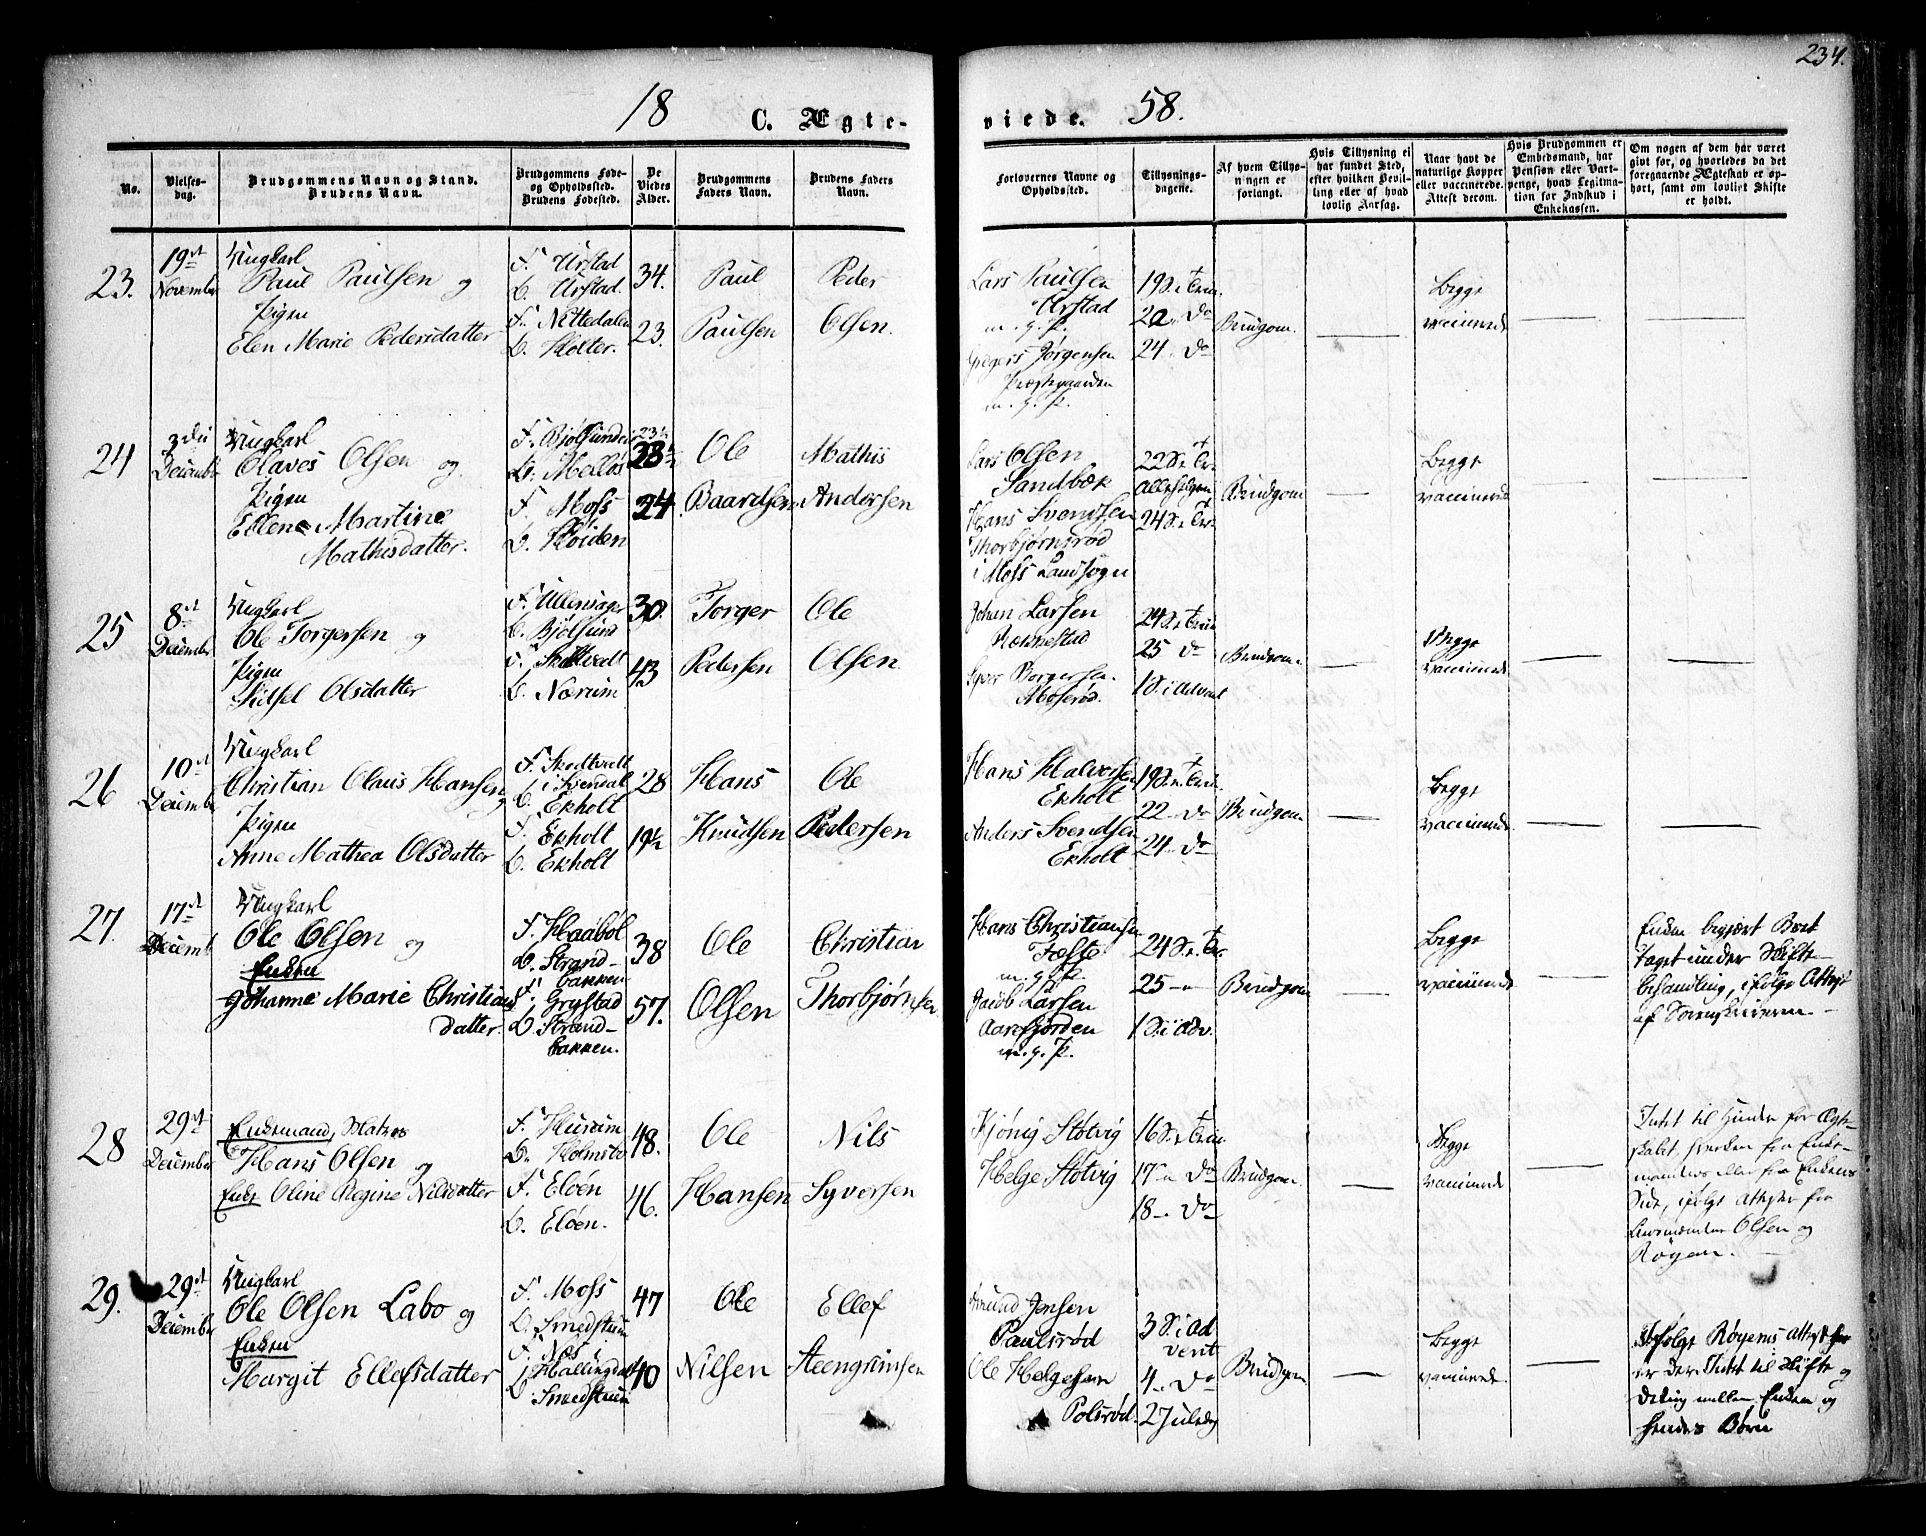 234.
18 C. Ægte-
viede. 58.
No.
Vielses-
dag.
Brudgommens Navn og Stand.
Brudens Navn.
Brudgommens Føde-
og Opholdssted.
Brudens Fødested.
De
Viedes
Alder.
Brudgommens
Faders Navn.
Brudens Faders
Navn.
Forlovernes Navne og
Opholdssted.
Tillysnings-
dagene.
Af hvem Tillys-
ningen er
forlangt.
Hvis Tillysning ei
har fundet Sted,
efter hvilken Bevil-
ling eller af hvad
lovlig Aarsag.
Naar havt de
naturlige Kopper
eller vaccinerede.
Attest derom.
Hvis Brudgommen er
Embedsmand, har
Pension eller Vart-
penge, hvad Legitima-
tion for Indskud i
Enkekassen.
Om nogen af dem har været
givt før, og hvorledes da det
foregaaende Ægteskab er op-
hørt, samt om lovligt Skifte
er holdt.
23.
19de
November
Ungkarl
Paul Paulsen og
Pigen
Elen Marie Pedersdatter
F. Urstad
B. Urstad.
F. Nittedalen
B. Holter.
34.
23.
Paul
Paulsen
Peder
Olsen.
Lars Paulsen
Urstad
m. g. P.
Gregers Jørgensen
Præstegaarden
m. g. P.
19 S. e. Trin.
20 Do
24 Do
Brudgom.
Begge
vaccinerede
24
3die
December
Ungkarl
Olaves Olsen og
Pigen
Ellene Martine
Mathisdatter.
F. Bjølsund
B. Melløs
F. Moss
B. Høiden
28
24
Ole
Baardsen
Mathis
Andersen
Lars Olsen
Sandbæk
Hans Svendsen
Thorbjørnsrød
i Moss Landsogn
22 S. e. Tr.
Allehelgen
24 S. e. Tr.
Brudgom
Begge
vaccinerede
25
8de
December
Ungkarl
Ole Torgersen og
Pigen
Sidsel Olsdatter
F. Ullensager
B. Bjølsund
F. Skudtvedt
B. Nærum
30.
43
Torger
Pedersen
Ole
Olsen
Johan Larsen
Rømmestad
Syver Borgersen
Moserød.
24 S. e. Trin
25 Do
1 S. i Advent
Brudgom
Begge
vaccinerede
26
10de
December
Ungkarl
Christian Olaus Hansen og
Pigen
Anne Mathea Olsdatter
F. Skodtvedt
i Svendal
B. Ekholt
F. Ekholt
B. Ekholt
28
19½
Hans
Knudsen
Ole
Pedersen
Hans Halvorsen
Ekholt
Anders Svendsen
Ekholt
19 S. e. Trin.
22 Do
24 Do
Brudgom
Begge
vaccinerede
27.
17de
December
Ungkarl
Ole Olsen og
Enken
Johanne Marie Christians
datter.
F. Haabøl
B. Strand-
bakken
F. Grystad
B. Strand-
bakken.
38
57.
Ole
Olsen
Christian
Thorbjørnsen
Hans Christiansen
Feste
m. g. P.
Jacob Larsen
Aarefjorden
m. g. P.
24 S. e. Tr.
25 — "
1 S. i Adv.
Brudgom
Begge
vaccinerede
Enken begjært Boet
taget under Skifte-
behandling, ifølge Attest
af Sorenskriveren.
28
29de
December
Enkemand, Matros
Hans Olsen og
Enke Oline Regine Nilsdatter
F. Hurum
B. Holmsbo
F. Eløen
B. Eløen.
48.
46.
Ole
Hansen
Nils
Syversen
Kjønig Støtvig
Helge Støtvig
16 S. e. Trin
17 Do
18 Do
Brudgom
Begge
vaccinerede
Intet til Hinder for Ægte-
skabet, hverken fra Enke-
mandens eller fra Enkens
Side, ifølge Attester fra
Lensmændene Olsen og
Røyem.
29.
29de
December
Ungkarl
Ole Olsen Labo og
Enken
Margit Ellefsdatter
F. Moss
B. Smedstuen
F. Næs i
Hallingdal
B. Smedstuen
47
40
Ole
Nilsen
Ellef
Steengrimsen
Amund Jensen
Paulsrød
Ole Helgesen
Polsrød.
3 S. i Ad
vent
4 Do
2 Juledag
Brudgom
Begge
vaccinerede.
Ifølge Røyems Attest her
er der Intet til Skifte og
Deling mellem Enken og
hendes Børn